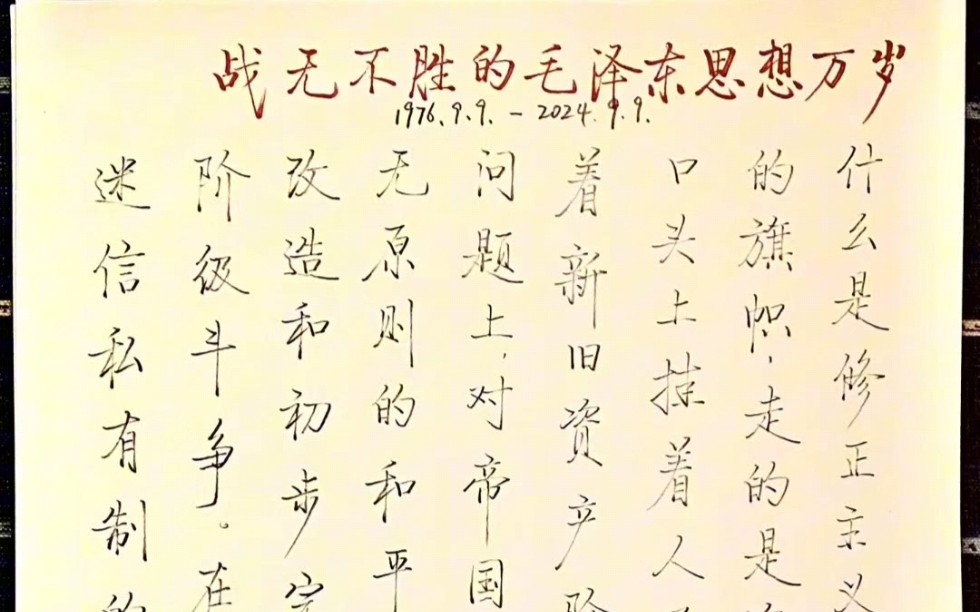 战无不胜的毛泽东思想万岁
1976.9.9. - 2024.9.9.
什么是修正主义
的旗帜，走的是
口头上挂着人
着新旧资产阶
问题上，对帝国
无原则的和平
改造和初步完
阶级斗争。在
迷信私有制的